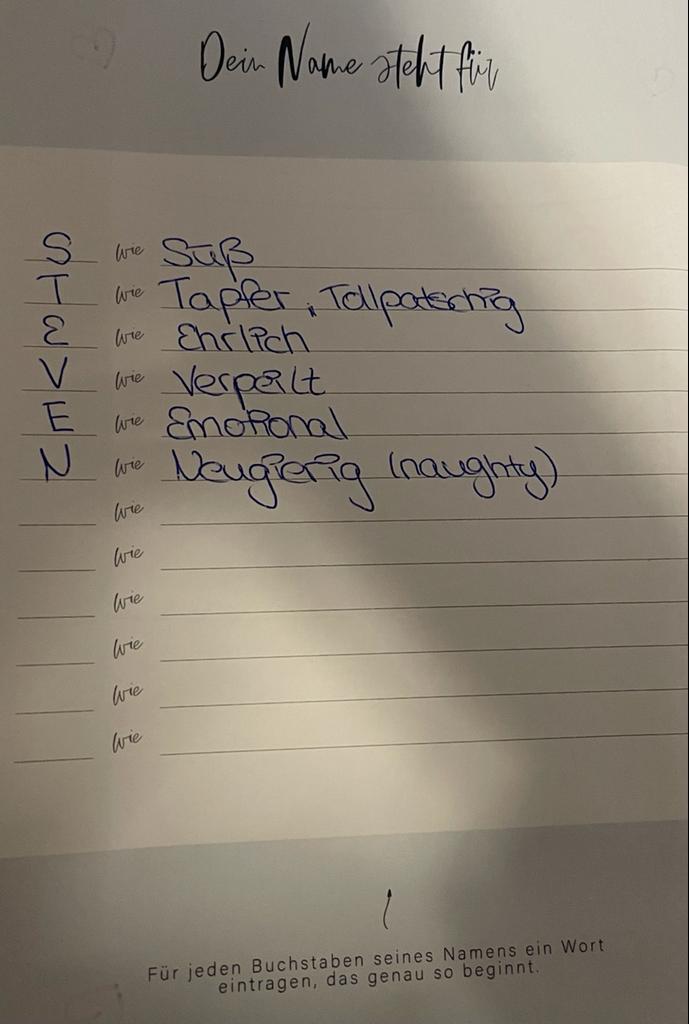 Dein Name steht für
S wie Süß
T wie Tapfer, Tollpatschig
E wie Ehrlich
V wie Verpeilt
E wie Emotional
N wie Neugierig (naughty)
wie
wie
wie
wie
wie
wie
Für jeden Buchstaben seines Namens ein Wort
eintragen, das genau so beginnt.